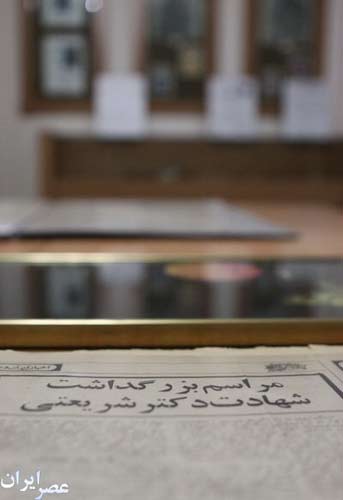 مراسم بزرگداشت
شهادت دکتر شریعتی
عصر ایران